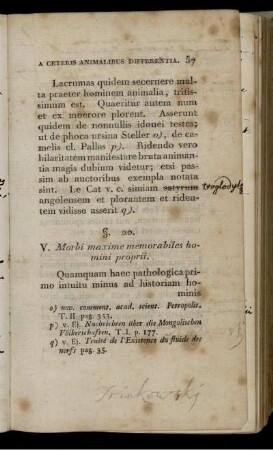 A CETERIS ANIMALIBUS DIFFERENTIA. 57
Lacrumas quidem secernere mul-
ta praeter hominem animalia, tritis-
simum est. Quaeritur autem num
et ex moerore plorent. Asserunt
quidem de nonnullis idonei testes;
ut de phoca ursina Steller o), de ca-
melis cl. Pallas p). Ridendo vero
hilaritatem manifesture bruta animan-
tia magis dubium videtur; etsi pas-
sim ab auctoribus exempla notata
sint. Le Cat v. c. simiam satyrum troglodyt
angolensem et plorantem et riden-
tem vidisse asserit q).
§. 20.
V. Morbi maxime memorabiles ho-
mini proprii.
Quamquam haec pathologica pri-
mo intuitu minus ad historiam ho-
minis
o) nov. comment. acad. scient. Petropolit.
T. II. pag. 353.
p) v. Ej. Nachrichten über die Mongolischen
Völkerschaften, T. I. p. 177.
q) v. Ej. Traité de l'Existence du fluide des
nerfs pag. 35.